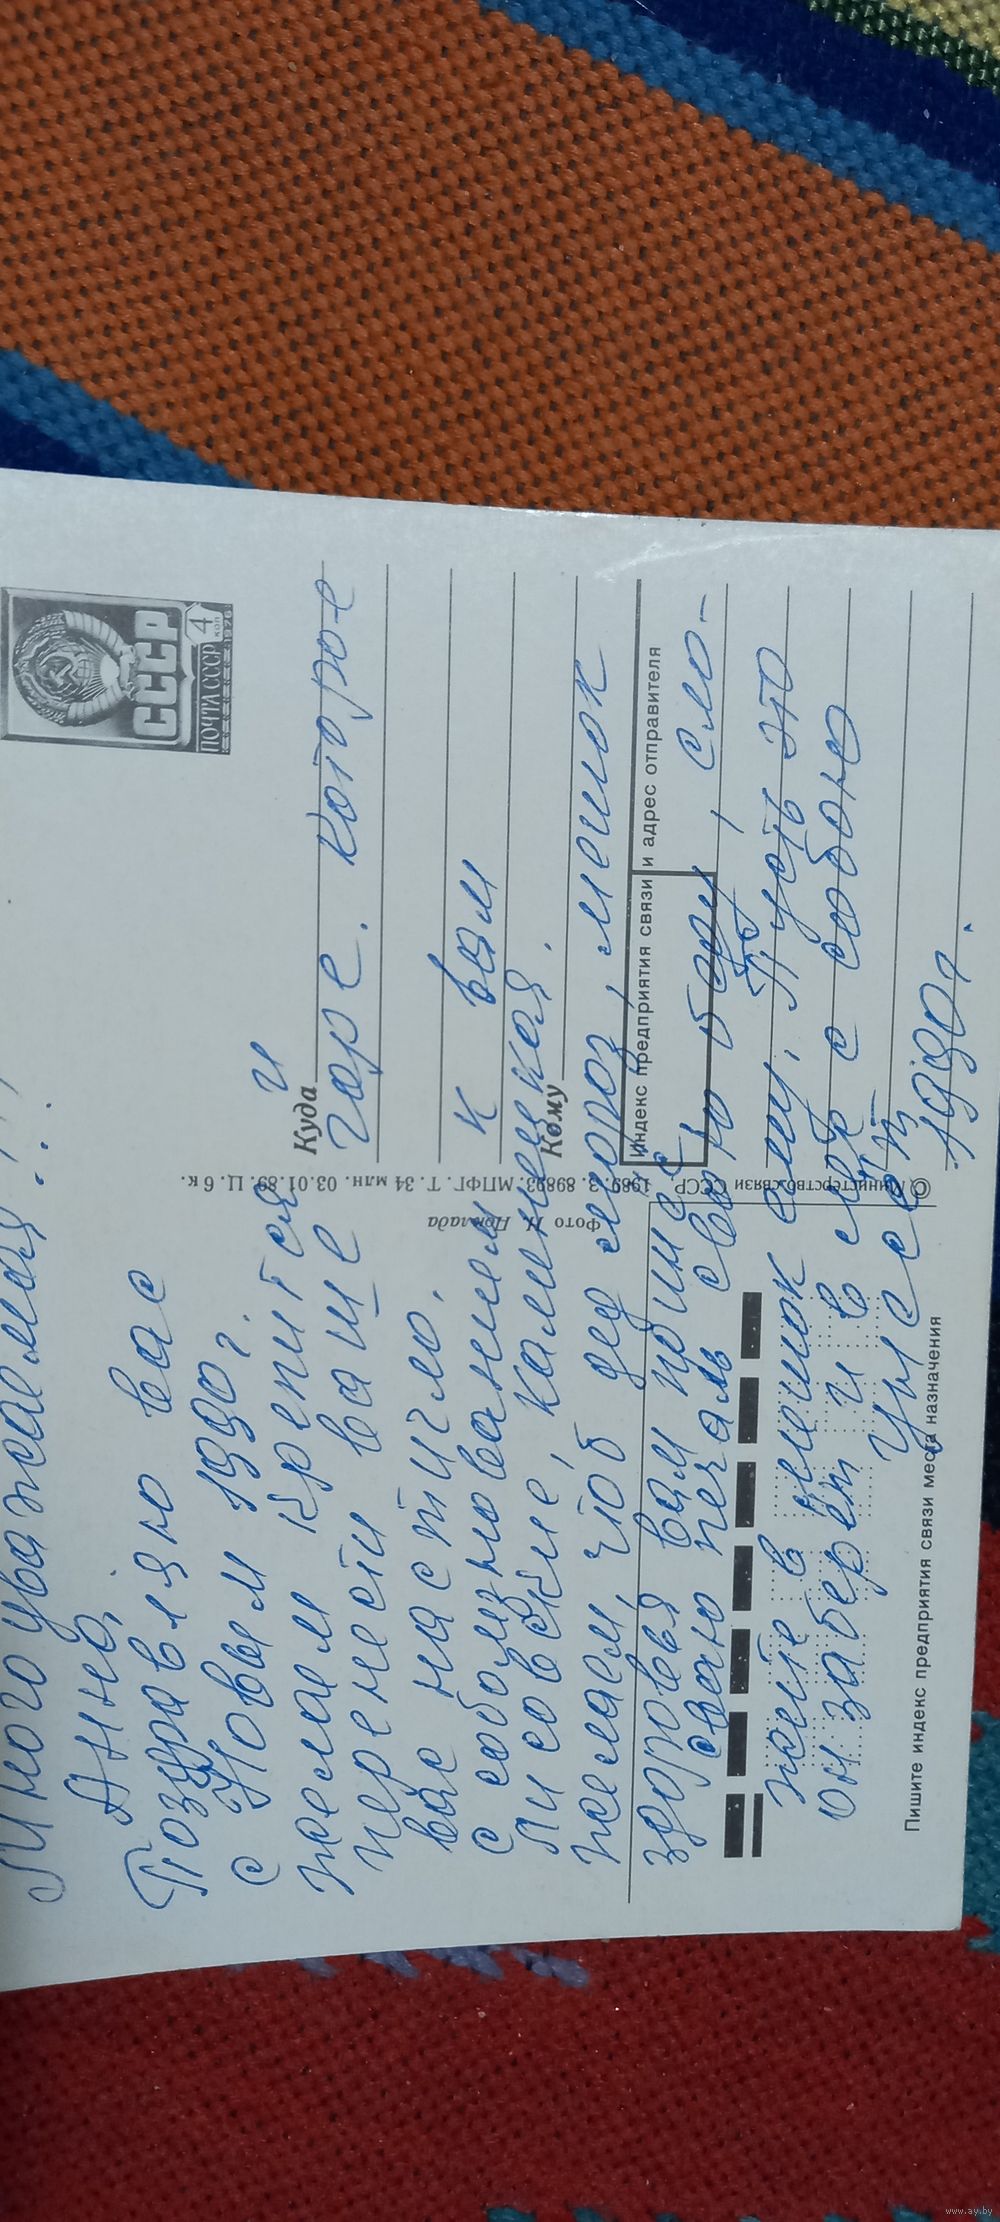 Многоуважаемая!!!
Анна,
Поздравляю вас
с Новым 1990г.
желаем крепится и
перенести ваше горе. которое
вас настигло.
с соболизнованием к вам
Лисовские, калинецкая.
желаем, чтоб дед мороз, мешок
здоровья вам принёс
свою печаль свою беду, сло-
жите в мешок ему. Пусть это
он заберёт и в лес с собою
унесёт
1990г.
ПОЧТА СССР
СССР
4
коп
1976
Куда
Кому
Индекс предприятия связи и адрес отправителя
Пишите индекс предприятия связи места назначения
© Министерство связи СССР, 1989. З. 89893. МПФГ. Т. 34 млн. 03.01.89. Ц. 6 к.
Фото И.
www.ay.by